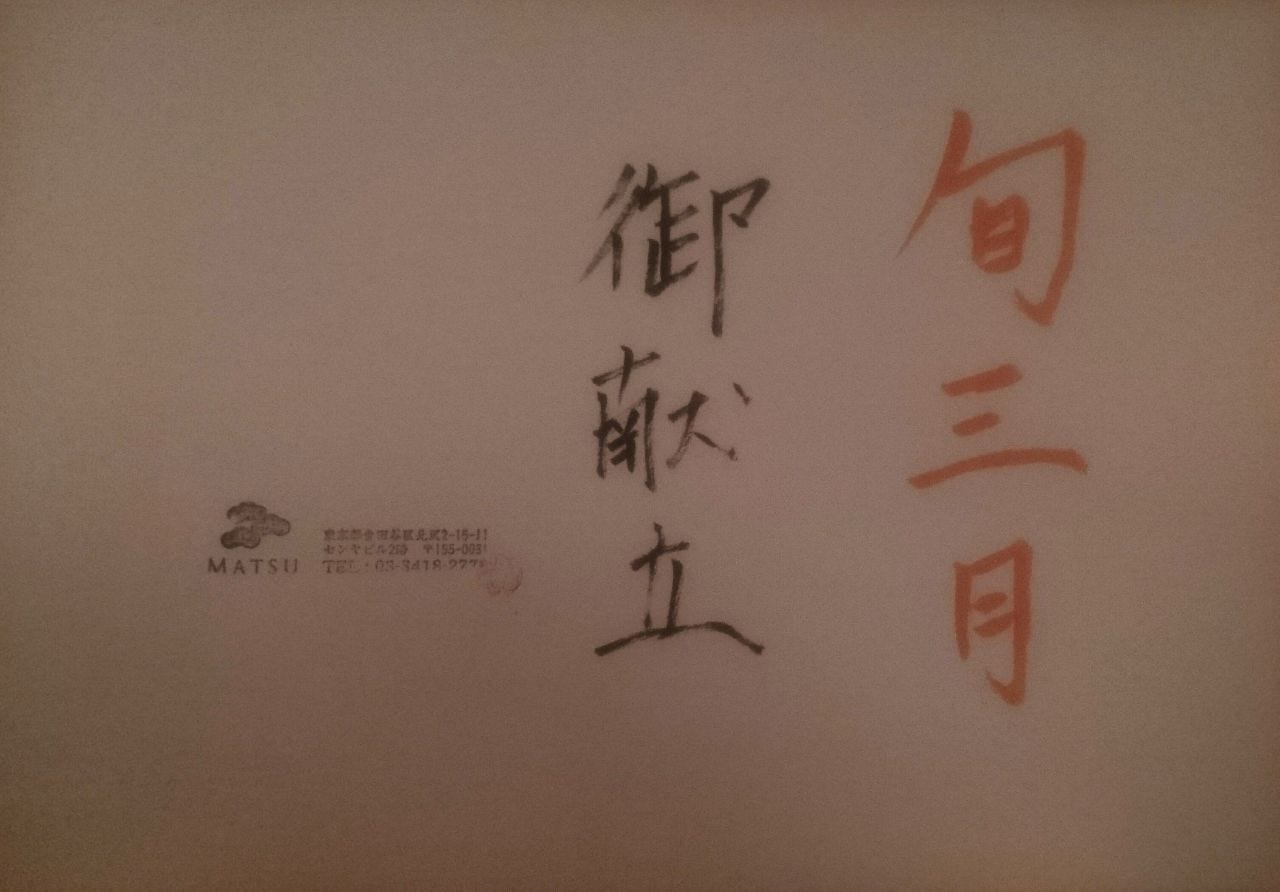 旬三月
御献立
MATSU
東京都世田谷区北沢2-15-11
センヤビル2階 〒155-0031
TEL・03-3418-277